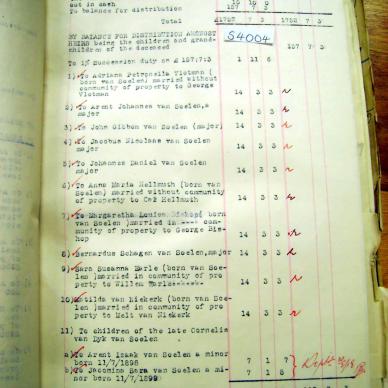 out in cash 15 15 0
To balance for distribution 157 7 3
Total £1752 7 3 1752 7 3
S4004
BY BALANCE FOR DISTRIBUTION AMONGST
HEIRS being the children and grand-
children of the deceased 157 7 3
To 1% Succession duty on £ 157:7:3 1 11 6
1) To Adriana Petronella Vlotman (
born van Soelen) married without
community of property to George
Vlotman 14 3 3
2) To Arent Johannes van Soelen, a
major 14 3 3
3) To John Gibbon van Soelen (major) 14 3 3
4) To Jacobus Nicolaas van Soelen
major 14 3 3
5) To Johannes Daniel van Soelen
major 14 3 3
6) To Anna Maria Hellmuth (born van
Soelen) married without community
of property to Carl Hellmuth 14 3 3
7) To Margaretha Louisa Bishop( born
van Soelen )married in ---- com-
munity of property to George Bis-
hop 14 3 3
8) Bernardus Schagen van Soelen, major 14 3 3
9) Sara Susanna Earle (born van Soe-
len )married in community of pro
perty to Willem Earle------ 14 3 3
10) Matilda van Niekerk (born van Soe-
len) married in community of pro
perty to Melt van Niekerk 14 3 3
11) To children of the late Cornelis
van Dyk van Soelen
a) To Arent Izaak van Soelen a minor
born 11/7/1898 7 1 7
b) To Jacomina Sara van Soelen a mi-
nor born 11/7/1899) 7 1 8